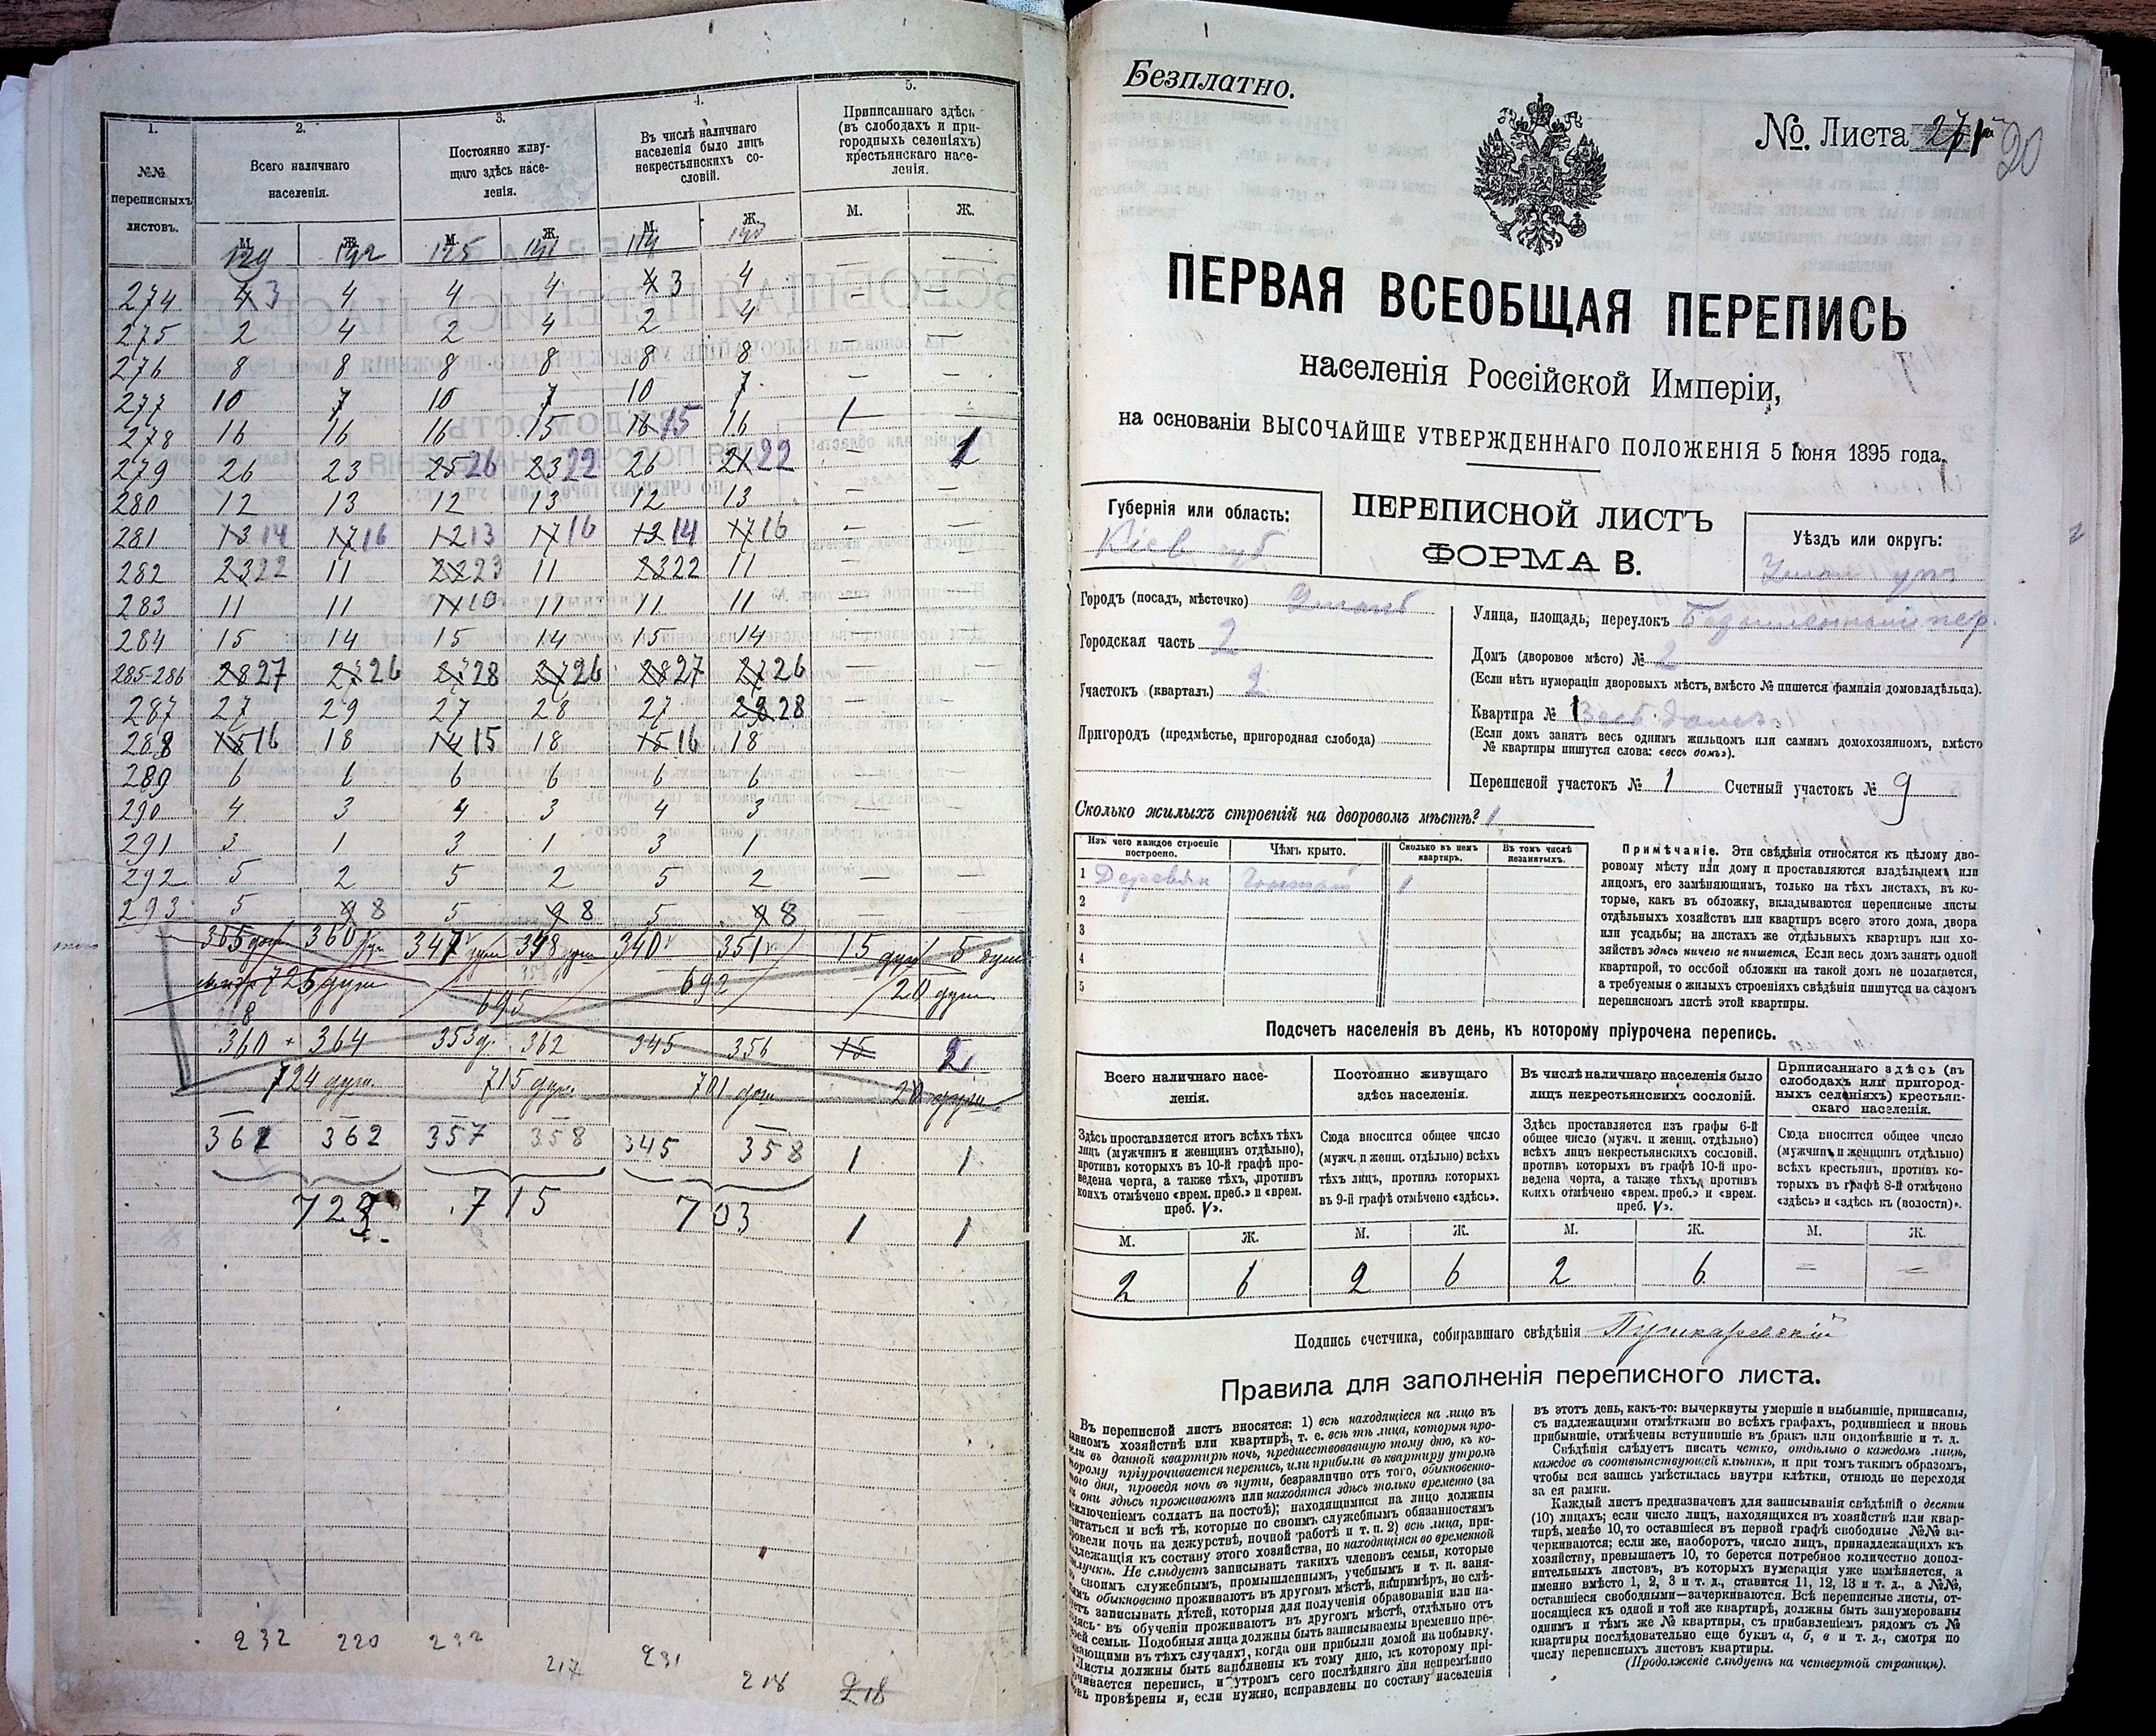 1.
2.
3.
4.
5.
№№
переписныхъ
листовъ.
Всего наличнаго
населенія.
Постоянно живу-
щаго здѣсь насе-
ленія.
Въ числѣ наличнаго
населенія было лицъ
некрестьянскихъ со-
словій.
Приписаннаго здѣсь
(въ слободахъ и при-
городныхъ селеніяхъ)
крестьянскаго насе-
ленія.
М. Ж. М. Ж. М. Ж. М. Ж.
129 192 125 191 114
274 4 3 4 4 4 4 3 4 — —
275 2 4 2 4 2 4 — —
276 8 8 8 8 8 8 — —
277 10 7 10 7 10 7 — —
278 16 16 16 15 16 15 16 1 —
279 26 23 25 26 23 22 26 21 22 — 1
280 12 13 12 13 12 13 — —
281 13 14 17 16 12 13 17 16 13 14 17 16 — —
282 23 22 11 22 23 11 23 22 11 — —
283 11 11 11 10 11 11 11 — —
284 15 14 15 14 15 14 — —
285-286 28 27 27 26 27 28 27 26 28 27 27 26 — —
287 27 29 27 28 27 29 28 — —
288 15 16 18 14 15 18 15 16 18
289 6 6 6 6 6 6 — —
290 4 3 4 3 4 3 — —
291 3 1 3 1 3 1 — —
292 5 2 5 2 5 2 — —
293 5 9 8 5 9 8 5 9 8 — —
365 душ 360 душ 347 душ 348 душ 340 351 15 душ 5 душ
725 душ 695 692 20 душ
360 + 364 353 д. 362 345 356 15 2
724 душ. 715 душ. 701 душ 20 душ
361 362 357 358 345 358 1 1
723 715 703 1 1
232 220 232 217 231 218 218
Безплатно.
№. Листа 271й
20
ПЕРВАЯ ВСЕОБЩАЯ ПЕРЕПИСЬ
населенія Россійской Имперіи,
на основаніи ВЫСОЧАЙШЕ УТВЕРЖДЕННАГО ПОЛОЖЕНІЯ 5 Іюня 1895 года.
Губернія или область:
Кіев губ
ПЕРЕПИСНОЙ ЛИСТЪ
ФОРМА В.
Уѣздъ или округъ:
Уман уѣз
Городъ (посадъ, мѣстечко) Умань
Городская часть 2
Участокъ (кварталъ) 2
Пригородъ (предмѣстье, пригородная слобода)
Улица, площадь, переулокъ пер.
Домъ (дворовое мѣсто) № 2
(Если нѣтъ нумераціи дворовыхъ мѣстъ, вмѣсто № пишется фамилія домовладѣльца).
Квартира № 1 Весь домъ
(Если домъ занятъ весь однимъ жильцомъ или самимъ домохозяиномъ, вмѣсто
№ квартиры пишутся слова: «весь домъ»).
Переписной участокъ № 1 Счетный участокъ № 9
Сколько жилыхъ строеній на дворовомъ мѣстѣ? 1
Изъ чего каждое строеніе
построено.
Чѣмъ крыто.
Сколько въ немъ
квартиръ.
Въ томъ числѣ
незанятыхъ.
1 Деревян 1
2
3
4
5
Примѣчаніе. Эти свѣдѣнія относятся къ цѣлому дво-
ровому мѣсту или дому и проставляются владѣльцемъ или
лицомъ, его замѣняющимъ, только на тѣхъ листахъ, въ ко-
торые, какъ въ обложку, вкладываются переписные листы
отдѣльныхъ хозяйствъ или квартиръ всего этого дома, двора
или усадьбы; на листахъ же отдѣльныхъ квартиръ или хо-
зяйствъ здѣсь ничего не пишется. Если весь домъ занятъ одной
квартирой, то особой обложки на такой домъ не полагается,
а требуемыя о жилыхъ строеніяхъ свѣдѣнія пишутся на самомъ
переписномъ листѣ этой квартиры.
Подсчетъ населенія въ день, къ которому пріурочена перепись.
Всего наличнаго насе-
ленія.
Постоянно живущаго
здѣсь населенія.
Въ числѣ наличнаго населенія было
лицъ некрестьянскихъ сословій.
Приписаннаго здѣсь (въ
слободахъ или пригород-
ныхъ селеніяхъ) крестьян-
скаго населенія.
Здѣсь проставляется итогъ всѣхъ тѣхъ
лицъ (мужчинъ и женщинъ отдѣльно),
противъ которыхъ въ 10-й графѣ про-
ведена черта, а также тѣхъ, противъ
коихъ отмѣчено «врем. преб.» и «врем.
преб. V».
Сюда вносится общее число
(мужч. и женщ. отдѣльно) всѣхъ
тѣхъ лицъ, противъ которыхъ
въ 9-й графѣ отмѣчено «здѣсь».
Здѣсь проставляется изъ графы 6-й
общее число (мужч. и женщ. отдѣльно)
всѣхъ лицъ некрестьянскихъ сословій.
противъ которыхъ въ графѣ 10-й про-
ведена черта, а также тѣхъ, противъ
коихъ отмѣчено «врем. преб.» и «врем.
преб. V».
Сюда вносится общее число
(мужчинъ и женщинъ отдѣльно)
всѣхъ крестьянъ, противъ ко-
торыхъ въ графѣ 8-й отмѣчено
«здѣсь» и «здѣсь къ (волости)».
М. Ж. М. Ж. М. Ж. М. Ж.
2 6 2 6 2 6 — —
Подпись счетчика, собиравшаго свѣдѣнія Пушкаревскій
Правила для заполненія переписного листа.
Въ переписной листъ вносятся: 1) всѣ находящіеся на лицо въ
данномъ хозяйствѣ или квартирѣ, т. е. всѣ тѣ лица, которыя про-
вели въ данной квартирѣ ночь, предшествовавшую тому дню, къ ко-
торому пріурочивается перепись, или прибыли въ квартиру утромъ
того дня, проведя ночь въ пути, безразлично отъ того, обыкновенно-
ли они здѣсь проживаютъ или находятся здѣсь только временно (за
исключеніемъ солдатъ на постоѣ); находящимися на лицо должны
считаться и всѣ тѣ, которые по своимъ служебнымъ обязанностямъ
провели ночь на дежурствѣ, ночной работѣ и т. п. 2) всѣ лица, при-
надлежащія къ составу этого хозяйства, но находящіяся во временной
отлучкѣ. Не слѣдуетъ записывать такихъ членовъ семьи, которые
по своимъ служебнымъ, промышленнымъ, учебнымъ и т. п. заня-
тіямъ обыкновенно проживаютъ въ другомъ мѣстѣ, напримѣръ, не слѣ-
дуетъ записывать дѣтей, которыя для полученія образованія или на-
ходясь въ обученіи проживаютъ въ другомъ мѣстѣ, отдѣльно отъ
своей семьи. Подобныя лица должны быть записываемы временно пре-
бывающими въ тѣхъ случаяхъ, когда они прибыли домой на побывку.
Листы должны быть заполнены къ тому дню, къ которому прі-
урочивается перепись, и утромъ сего послѣдняго дня непремѣнно
вновь провѣрены и, если нужно, исправлены по составу населенія
въ этотъ день, какъ-то: вычеркнуты умершіе и выбывшіе, приписаны,
съ надлежащими отмѣтками во всѣхъ графахъ, родившіеся и вновь
прибывшіе, отмѣчены вступившіе въ бракъ или овдовѣвшіе и т. д.
Свѣдѣнія слѣдуетъ писать четко, отдѣльно о каждомъ лицѣ,
каждое въ соотвѣтствующей клѣткѣ, и при томъ такимъ образомъ,
чтобы вся запись умѣстилась внутри клѣтки, отнюдь не переходя
за ея рамки.
Каждый листъ предназначенъ для записыванія свѣдѣній о десяти
(10) лицахъ; если число лицъ, находящихся въ хозяйствѣ или квар-
тирѣ, менѣе 10, то оставшіеся въ первой графѣ свободные №№ за-
черкиваются; если же, наоборотъ, число лицъ, принадлежащихъ къ
хозяйству, превышаетъ 10, то берется потребное количество допол-
нительныхъ листовъ, въ которыхъ нумерація уже измѣняется, а
именно вмѣсто 1, 2, 3 и т. д., ставится 11, 12, 13 и т. д., а №№,
оставшіеся свободными—зачеркиваются. Всѣ переписные листы, от-
носящіеся къ одной и той же квартирѣ, должны быть занумерованы
однимъ и тѣмъ же № квартиры, съ прибавленіемъ рядомъ съ №
квартиры послѣдовательно еще буквъ а, б, в и т. д., смотря по
числу переписныхъ листовъ квартиры.
(Продолженіе слѣдуетъ на четвертой страницѣ).